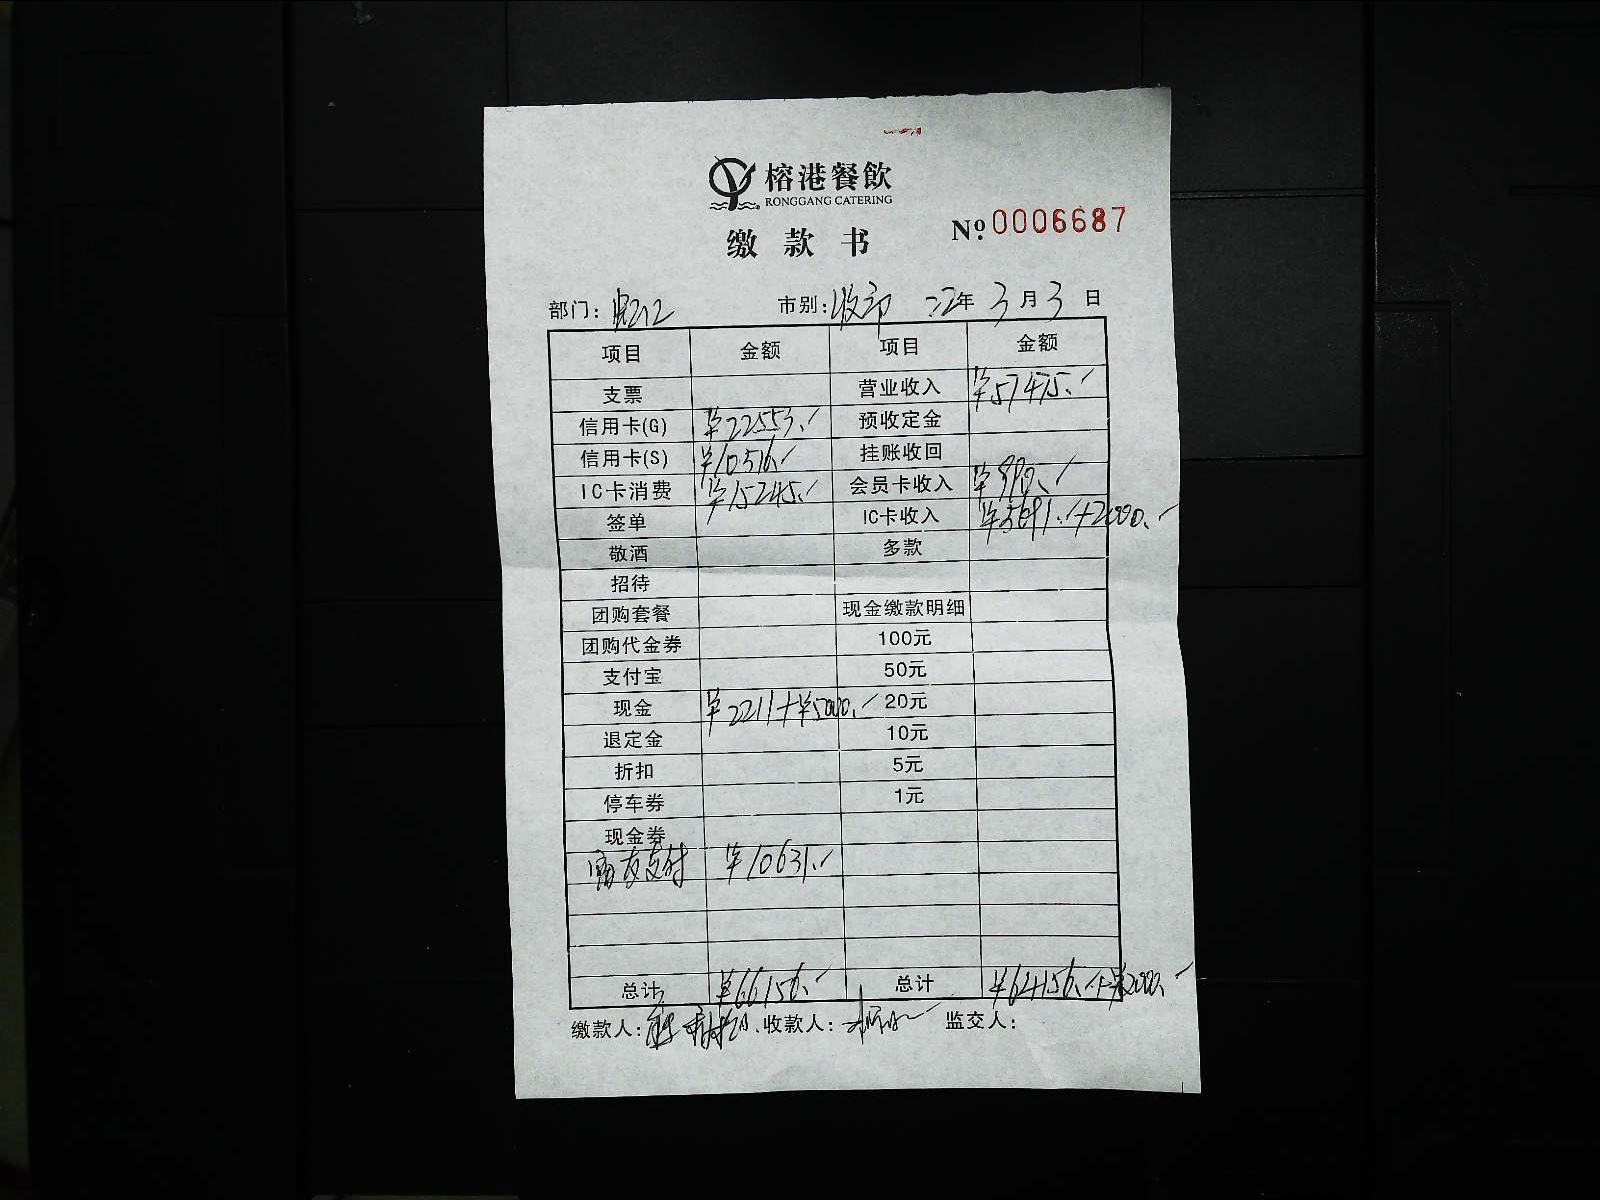 榕港餐飲
RONGGANG CATERING
缴款书
№ 0006687
部门: 市别: 年 3 月 3 日
项目 金额 项目 金额
支票 营业收入 ¥57475.
信用卡(G) ¥22553. 预收定金
信用卡(S) ¥10516. 挂账收回
IC卡消费 ¥15245. 会员卡收入 ¥990.
签单 IC卡收入 ¥5691.+2000.
敬酒 多款
招待
团购套餐 现金缴款明细
团购代金券 100元
支付宝 50元
现金 ¥2211+¥5000. 20元
退定金 10元
折扣 5元
停车券 1元
现金券
支付 ¥10631.
总计 ¥66156. 总计 ¥64156.+¥2000.
缴款人: 收款人: 监交人: